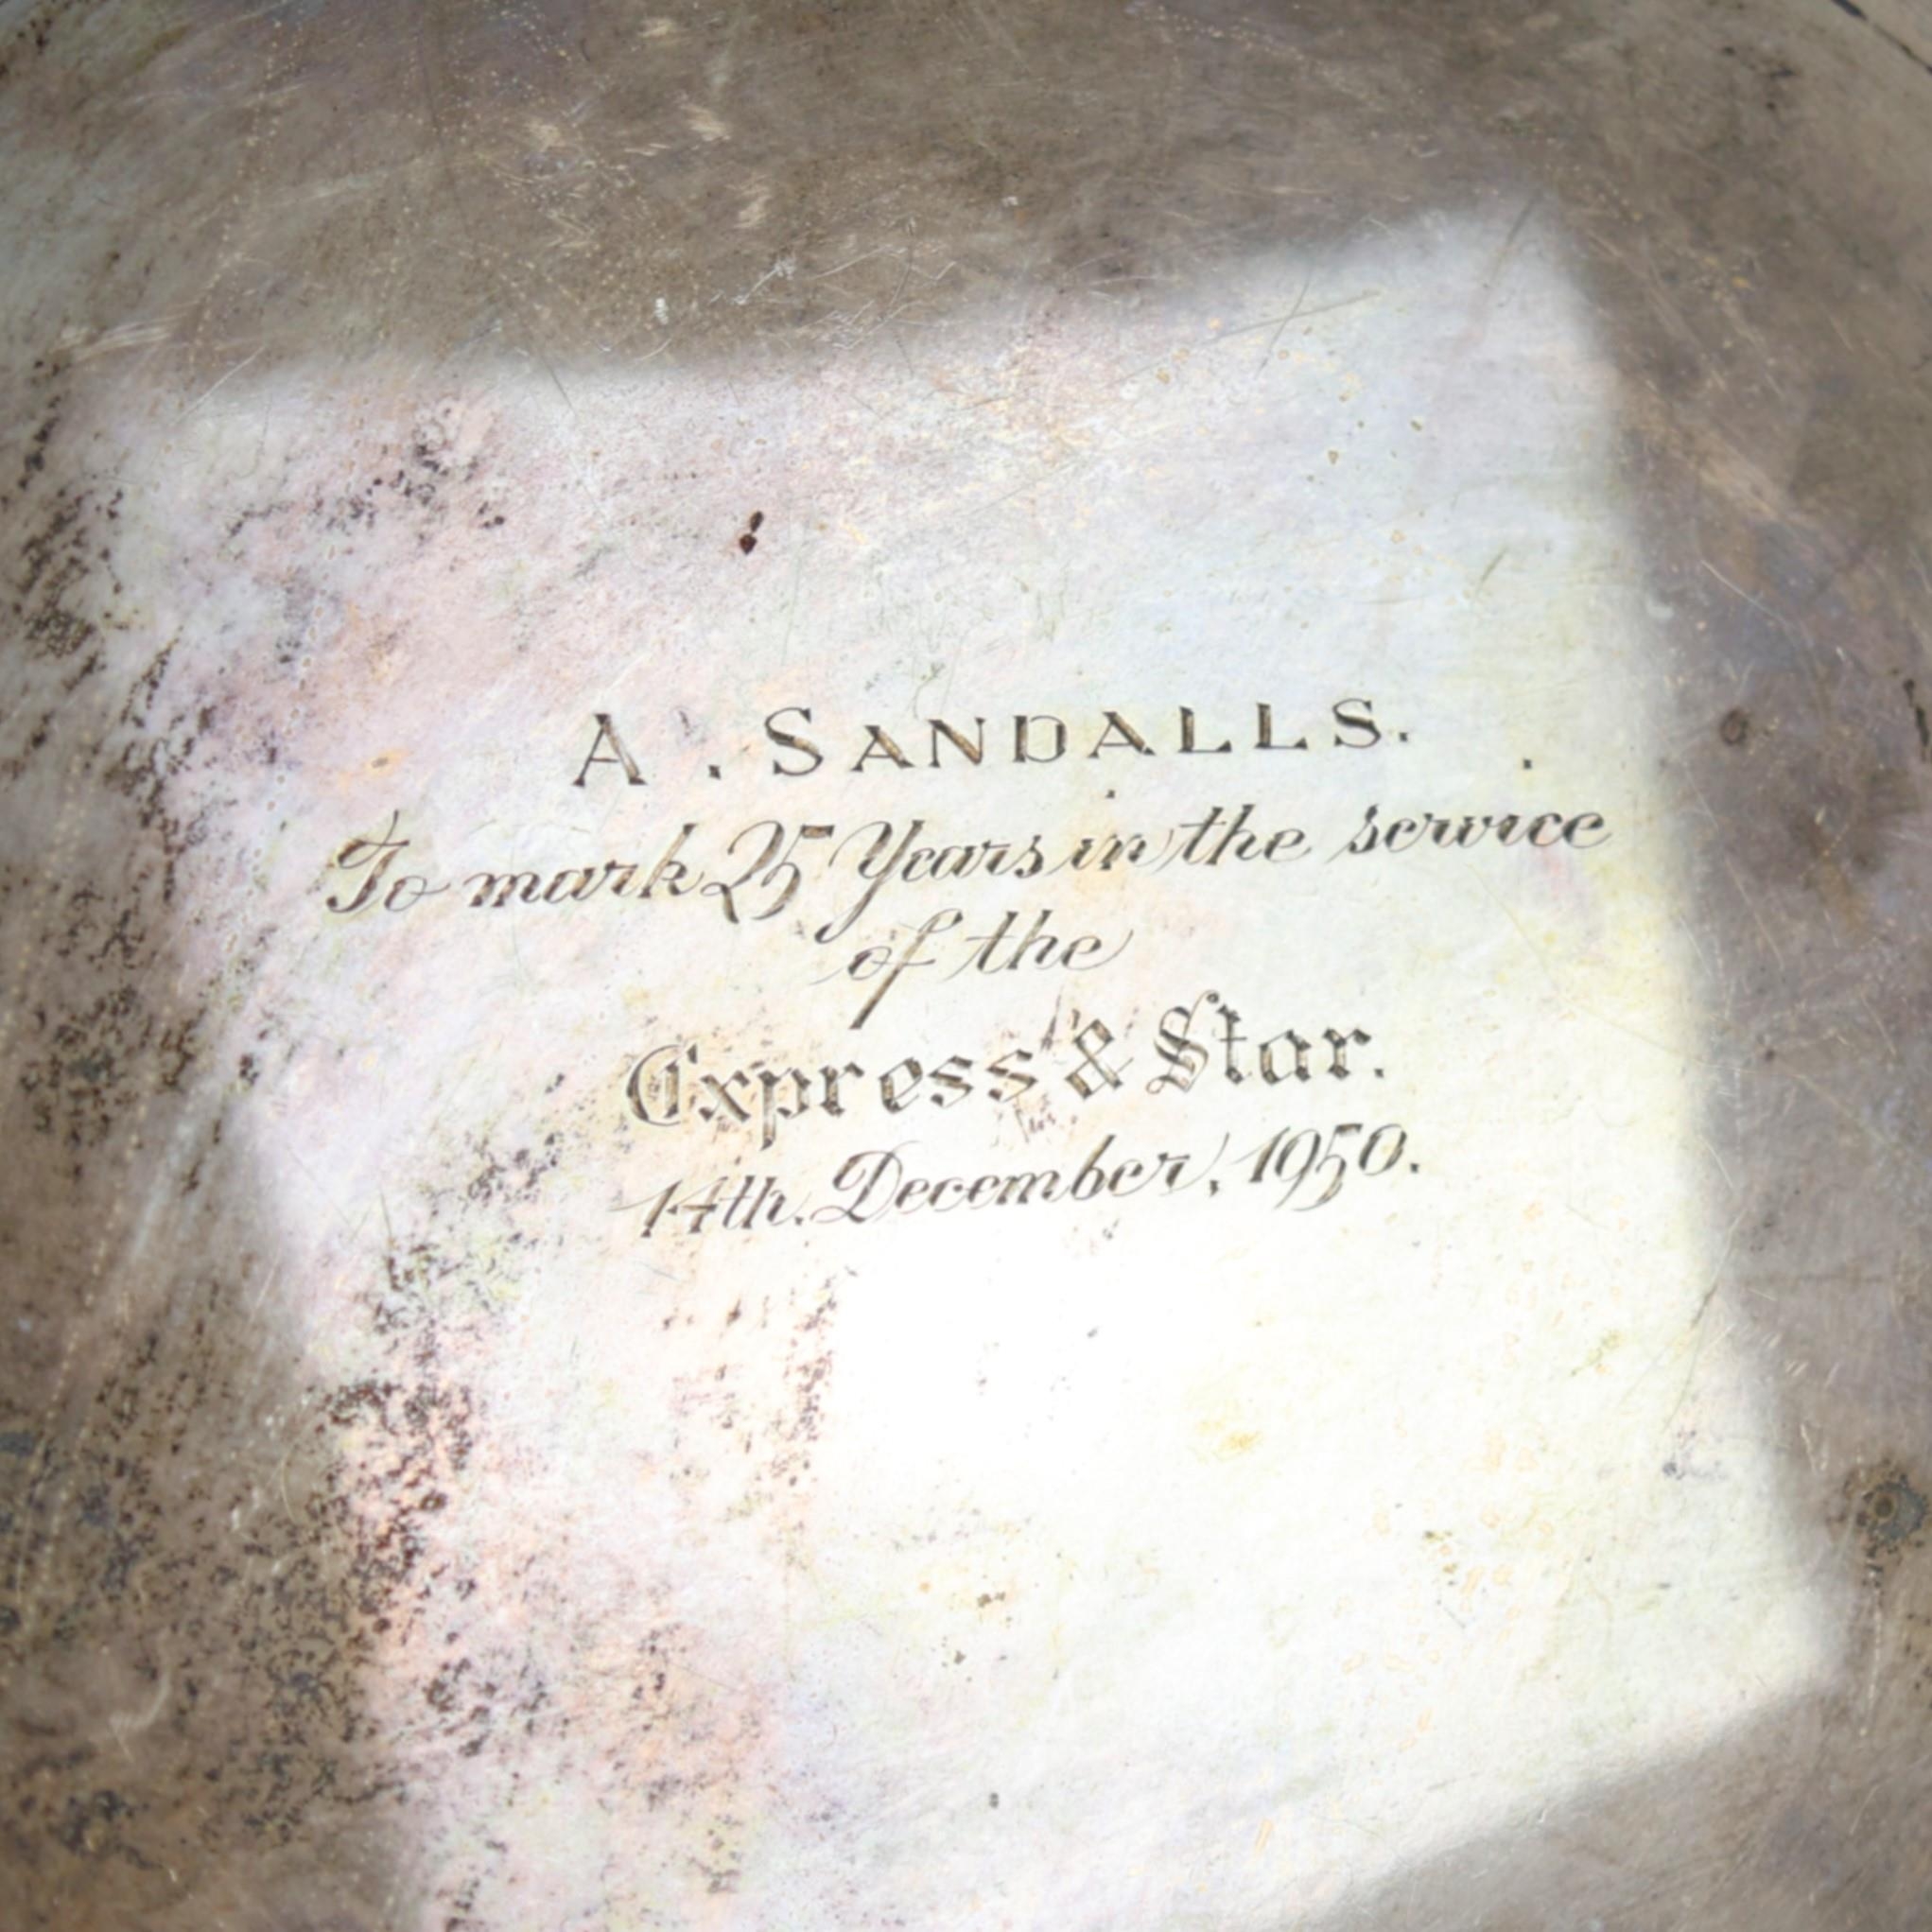 A. SANDALLS.
To mark 25 Years in the service
of the
Express & Star.
14th. December, 1950.